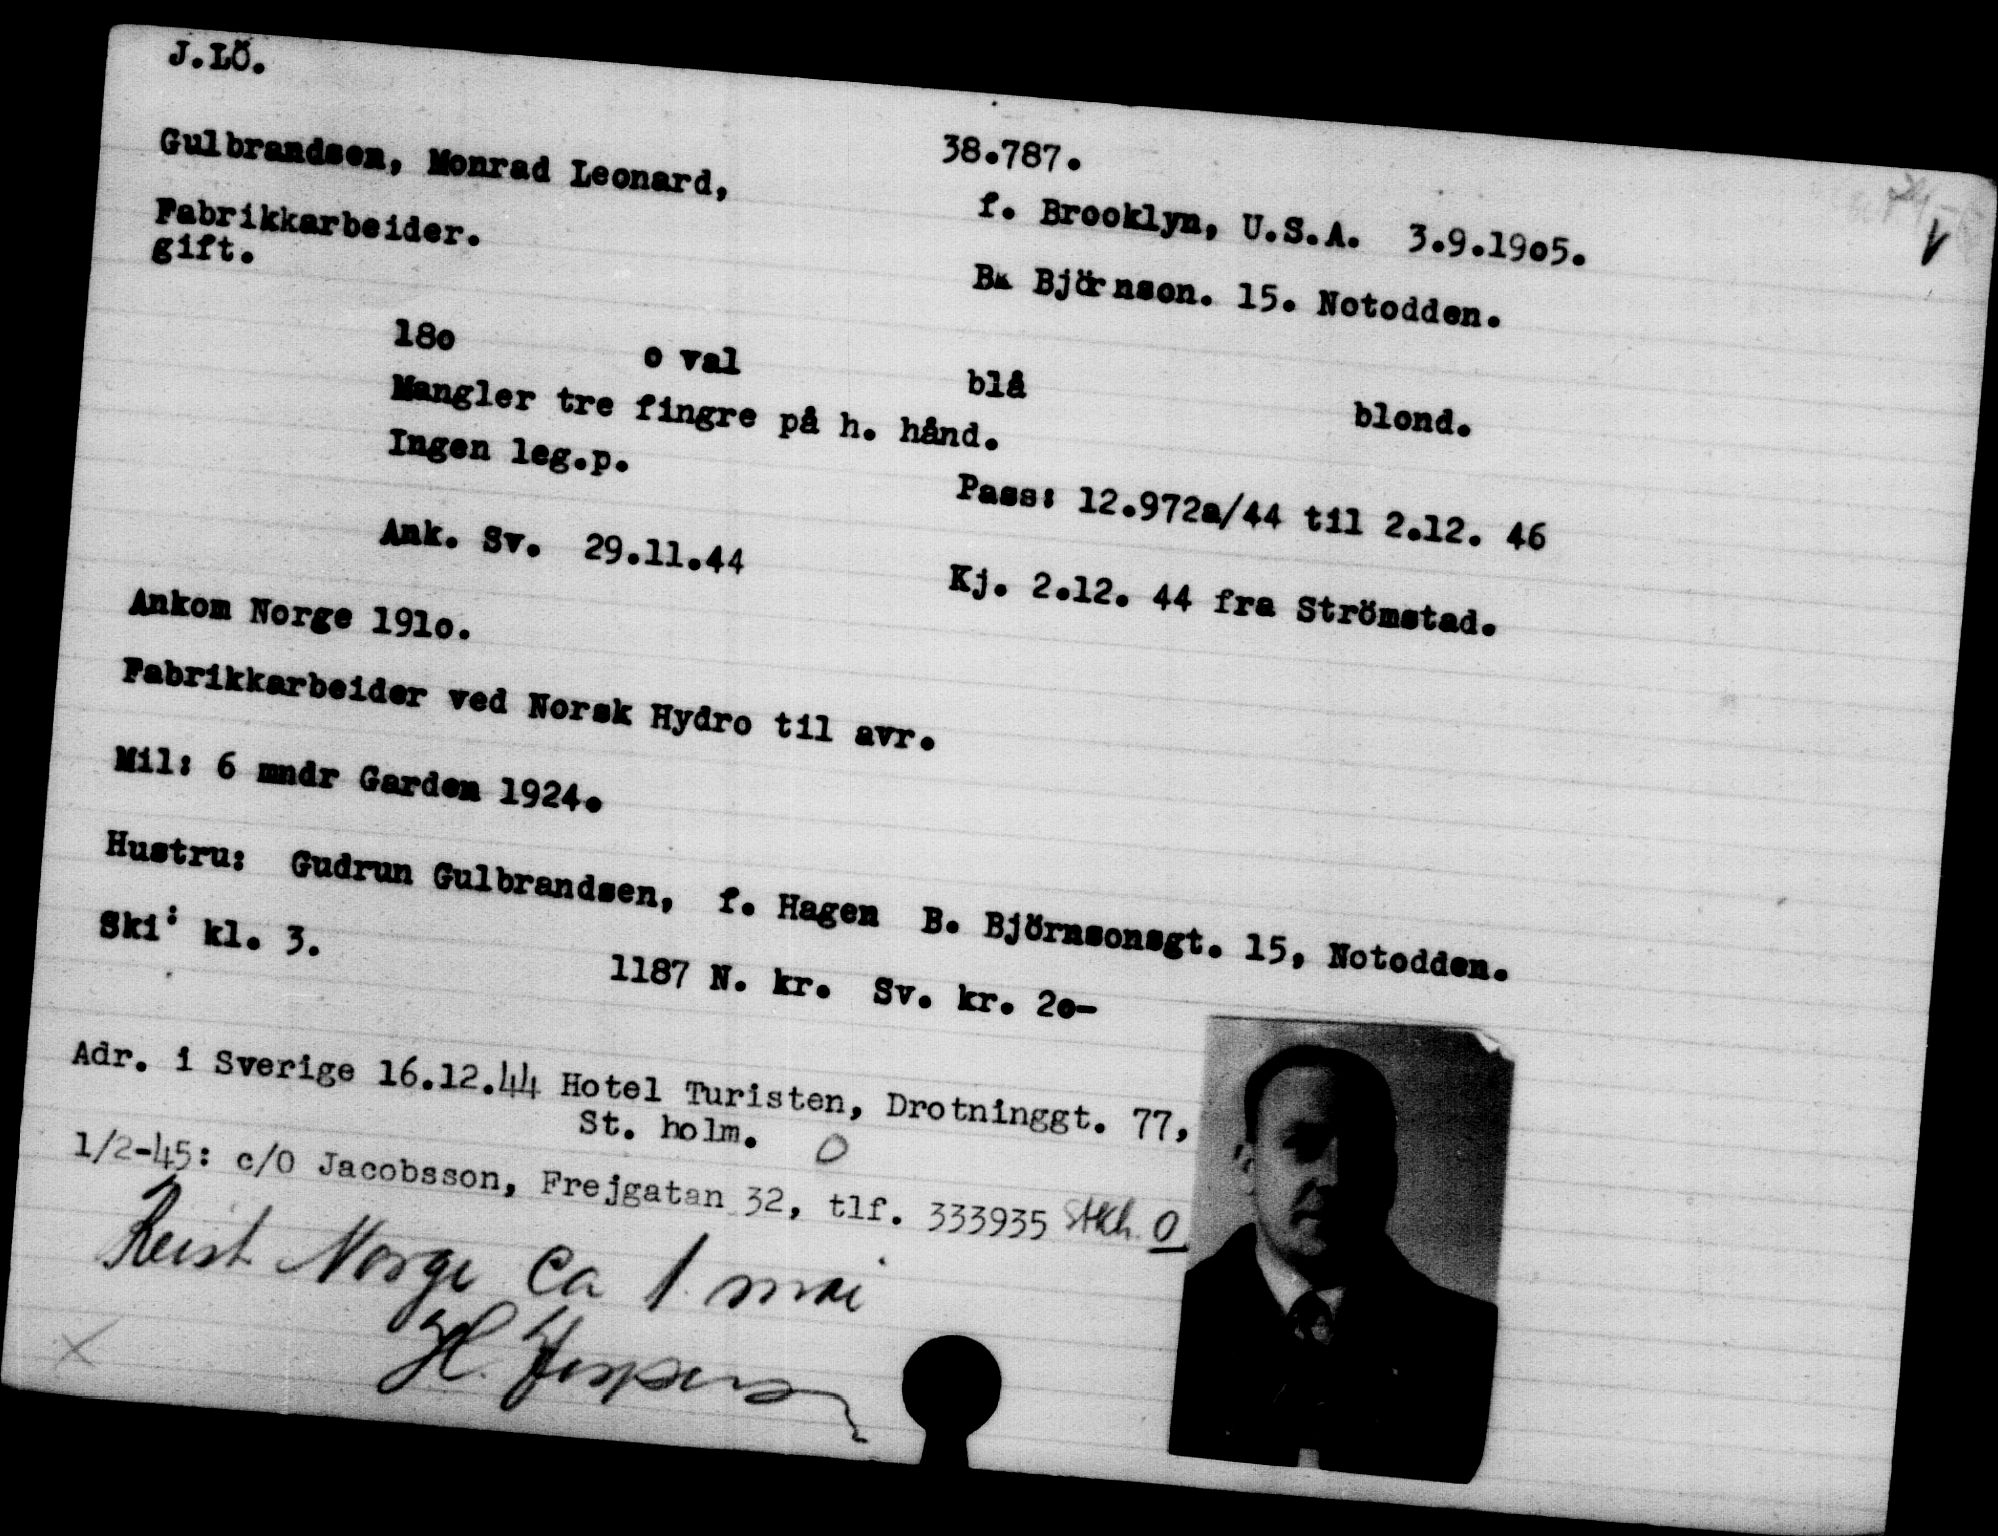 J.LÖ.
38.787.
Gulbrandsen, Monrad Leonard,
f. Brooklyn, U.S.A. 3.9.19o5.
Fabrikkarbeider.
gift.
B. Björnson. 15. Notodden.
18o o val blå blond.
Mangler tre fingre på h. hånd.
Ingen leg.p.
Pass: 12.972a/44 til 2.12. 46
Ank. Sv. 29.11.44
Kj. 2.12. 44 fra Strömstad.
Ankom Norge 191o.
Fabrikkarbeider ved Norsk Hydro til avr.
Mil: 6 mndr Garden 1924.
Hustru: Gudrun Gulbrandsen, f. Hagen B. Björnsonsgt. 15, Notodden.
Ski: kl. 3.
1187 N. kr. Sv. kr. 2o-
Adr. i Sverige 16.12.44 Hotel Turisten, Drotninggt. 77,
St. holm. O
1/2-45: c/O Jacobsson, Frejgatan 32, tlf. 333935 Stkh. O
Reist Norge Ca 1. mai
H. Jespersen